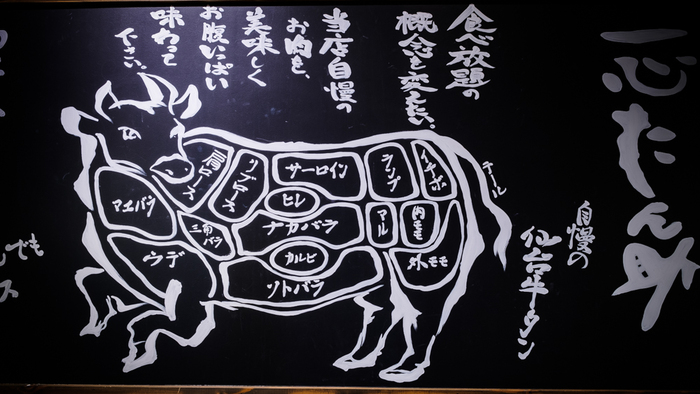 一心たん
自慢の
仙台牛タン
食べ放題の
概念を変えたい。
当店自慢の
お肉を、
美味しく
お腹いっぱい
味わって
下さい。
テール
イチボ
ランプ
サーロイン
リブロース
肩ロース
ヒレ
マエバラ
三角
バラ
ナカバラ
マル
内モモ
ウデ
カルビ
外モモ
ソトバラ
でも
ス